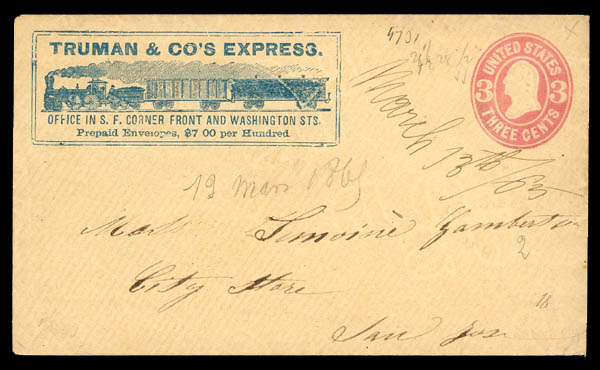 TRUMAN & CO'S EXPRESS.
OFFICE IN S. F. CORNER FRONT AND WASHINGTON STS.
Prepaid Envelopes, $7 00 per Hundred
UNITED STATES
3 3
THREE CENTS
March 13th/65
19 Mars 1865
Lemoinè
City Store
San Jose
2
18